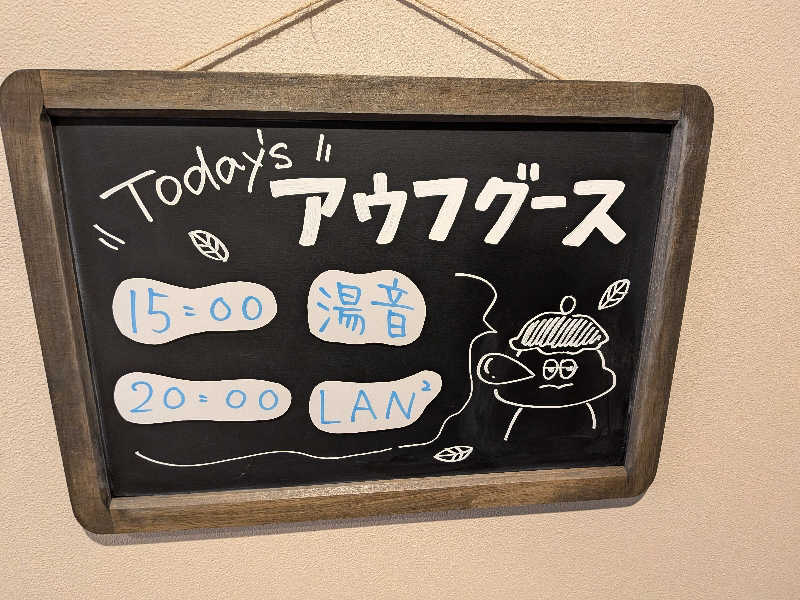 Today's
アウフグース
15:00 湯音
20:00 LAN²